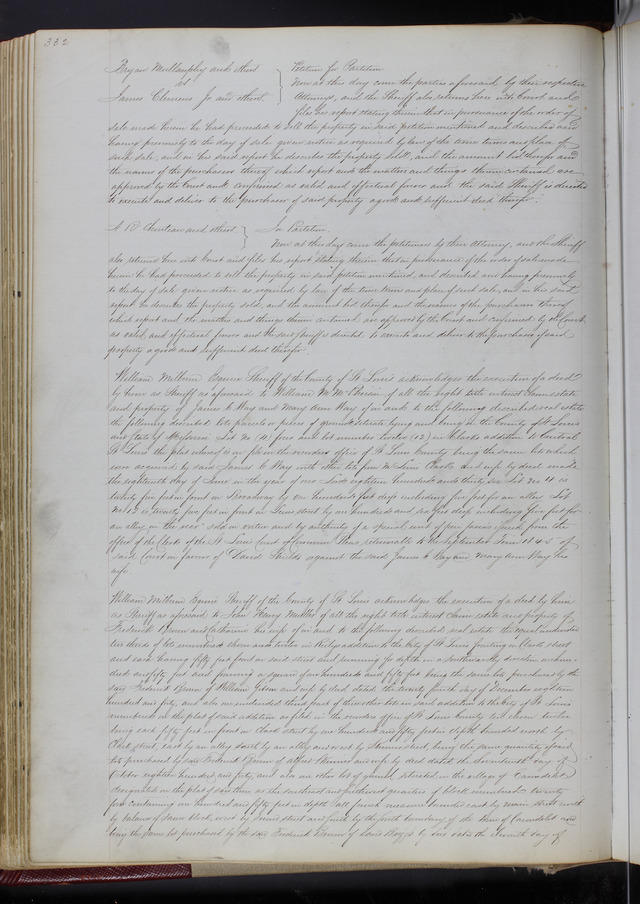 332
Bryan Mullanphy and others } Petition for Partition
vs Now at this day come the parties aforesaid, by their respective
James Clemens Jr and others Attorneys, and the Sheriff also returns here into Court and
files his report stating therein that in pursuance of the order of
sale made herein he had proceeded to sell the property in said petition mentioned and described and
having previously to the day of sale given notice as required by law of the time terms and place of
such sale, and in his said report he describes the property sold, and the amount bid therefor and
the names of the purchasers thereof which report and the matters and things therein contained are
approved by the Court and confirmed as valid and effectual and the said Sheriff is directed
to execute and deliver to the purchaser of said property a good and sufficient deed therefor.
and others } In Partition
Now at this day come the petitioners by their Attorney, and the Sheriff
also returns here into Court and files his report stating therein that in pursuance of the order of sale made
herein he had proceeded to sell the property in said petition mentioned, and described and having previously
to the day of sale given notice as required by law of the time terms and place of such sale, and in his said
report he describes the property sold, and the amount bid therefor and the names of the purchasers thereof
which report and the matters and things therein contained are approved by the Court and confirmed by the Court
as valid and effectual and the said Sheriff is directed to execute and deliver to the purchaser of said
property a good and sufficient deed therefor.
William Milburn Esquire Sheriff of the County of St Louis acknowledges the execution of a deed
by him as Sheriff as aforesaid to William M. McPherson of all the right title interest claim estate
and property of James C Way and Mary Ann Way of in and to the following described real estate
the following described lots parcels or pieces of ground situate lying and being in the County of St Louis
and State of Missouri Lot No (4) four and lot number twelve (12) in Clarks addition to Central
St Louis the plat whereof is on file in the recorders office of St Louis County being the same lots which
were acquired by said James C Way with other lots from Clark and wife by deed made
the eighteenth day of June in the year of our Lord eighteen hundred and thirty Lot No 4 is
twenty five feet in front on Broadway by one hundred feet deep including five feet for an alley Lot
No 12 is twenty five feet in front on street by one hundred and feet deep including five feet for
an alley in the rear sold in virtue and by authority of a special writ of fieri facias issued from the
office of the Clerk of the St Louis Court of Common Pleas returnable to the September Term 1845 of
said Court in favor of David Shields against the said James C Way and Mary Ann Way his
wife
William Milburn Esquire Sheriff of the County of St Louis acknowledges the execution of a deed by him
as Sheriff as aforesaid to John Henry Miller of all the right title interest claim estate and property of
Frederick and Catharine his wife of in and to the following described real estate the equal undivided
two thirds of lots numbered eleven and twelve in addition to the City of St Louis fronting on Clark street
and each having fifty feet front on said street and running for depth in a southwardly direction one hun
dred and fifty feet and forming a square of one hundred and fifty feet being the same lots purchased by the
said Frederick of William and wife by deed dated the twenty fourth day of December eighteen
hundred and forty, and also an undivided third part of two other lots in said addition to the City of St Louis
numbered on the plat of said addition as filed in the recorders office of St Louis County lots eleven twelve
being each fifty feet in front on Clark street by one hundred and fifty feet in depth bounded north by
Clark street, east by an alley south by an alley and west by street, being the same quantity of land
lots purchased by said Frederick of and wife by deed dated the seventeenth day of
October eighteen hundred and forty, and also one other lot of ground situated in the village of Carondelet
designated in the plat of said town as the southeast and northwest quarters of block numbered twenty
five containing one hundred and fifty feet in depth all french measure bounded east by main street north
by balance of same block west by second street and south by the north boundary of the town of Carondelet and
being the same lot purchased by the said Frederick of Louis by deed dated the eleventh day of